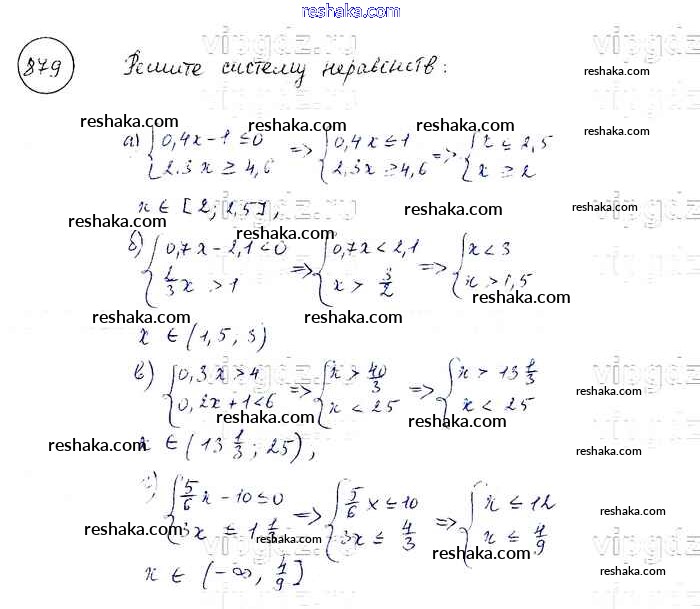 reshaka.com
879 Решите систему неравенств:
reshaka.com
reshaka.com reshaka.com reshaka.com
а) { 0,4x - 1 ≤ 0 => { 0,4x ≤ 1 => { x ≤ 2,5
2,3x ≥ 4,6 2,3x ≥ 4,6 x ≥ 2
x ∈ [2; 2,5],
reshaka.com reshaka.com reshaka.com
б) { 0,7x - 2,1 < 0 => { 0,7x < 2,1 => { x < 3
x > 1 x > 3/2 x > 1,5
reshaka.com reshaka.com reshaka.com
x ∈ (1,5, 3)
в) { 0,3x > 4 => { x > 40/3 => { x > 13 1/3
0,2x + 1 < 6 x < 25 x < 25
reshaka.com reshaka.com reshaka.com
x ∈ (13 1/3; 25),
reshaka.com reshaka.com reshaka.com
{ 5/6 x - 10 ≤ 0 => { 5/6 x ≤ 10 => { x ≤ 12
3x ≤ 1 1/3 3x ≤ 4/3 x ≤ 4/9
reshaka.com reshaka.com reshaka.com reshaka.com
x ∈ (-∞, 4/9]